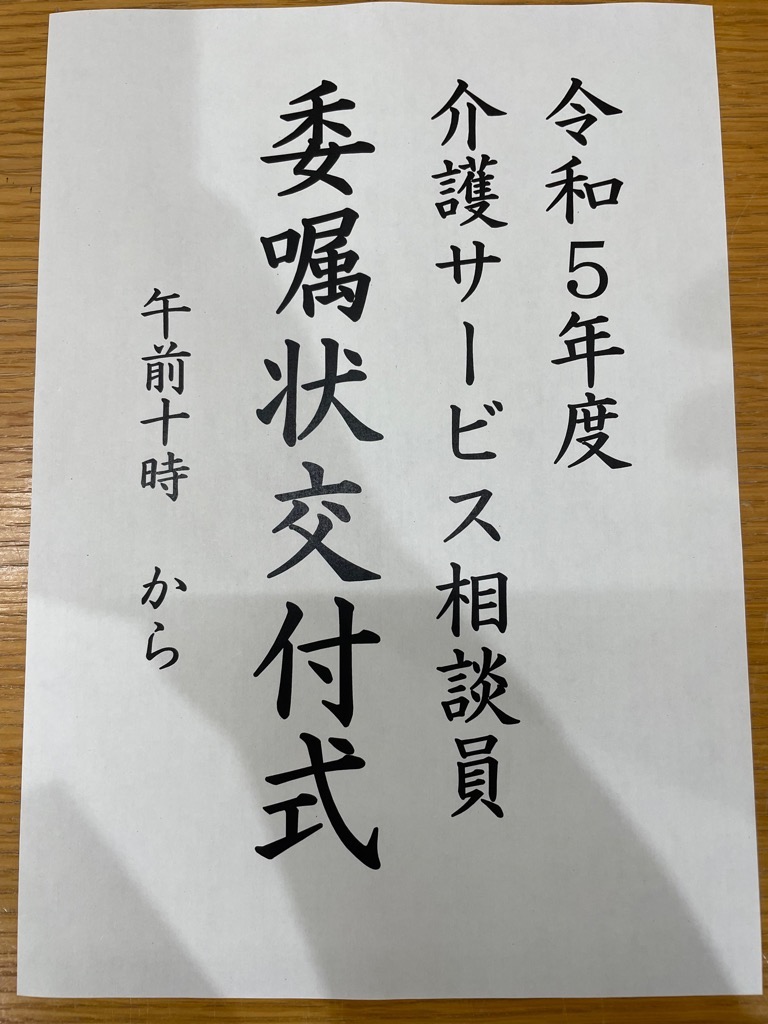 令和５年度
介護サービス相談員
委嘱状交付式
午前十時　から